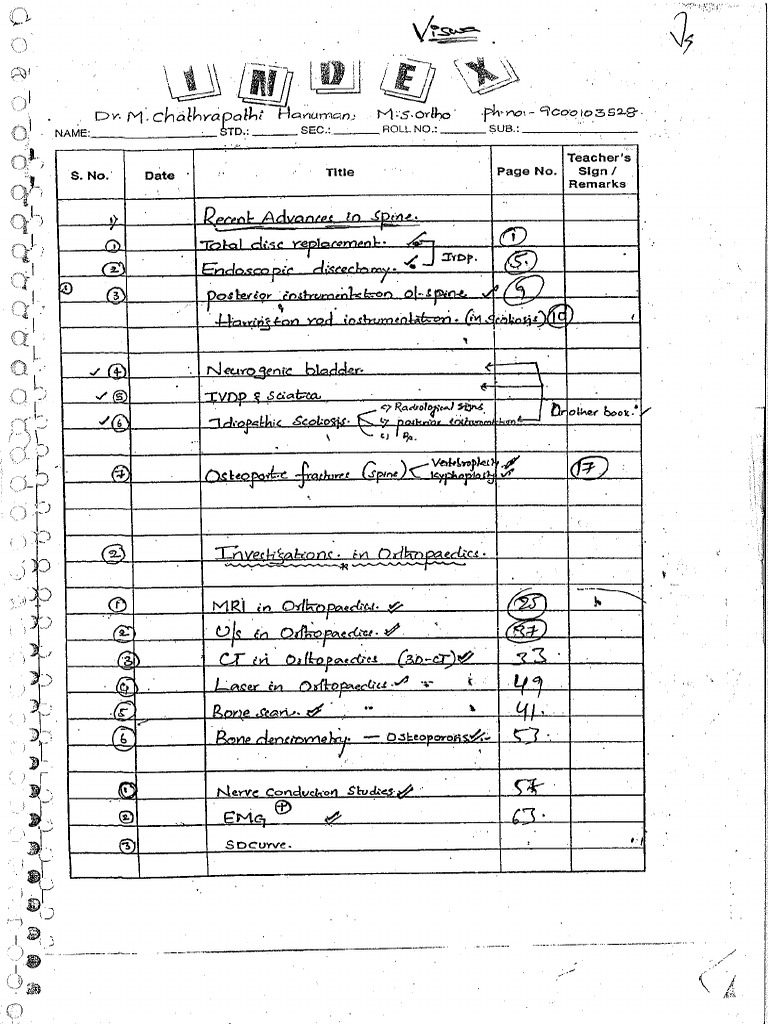 Viswa
INDEX
Dr. M. Chathrapathi Hanuman, M.S. Ortho Ph.no:- 9000103528
NAME: STD.: SEC.: ROLL NO.: SUB.:
S. No. Date Title Page No. Teacher's Sign / Remarks
1) Recent Advances in Spine.
① Total disc replacement. ✓ ①
② Endoscopic discectomy. ✓ IVDP. ⑤
① ③ posterior instrumentation of spine ✓ ⑨
Harrington rod instrumentation. (in scoliosis) ⑩
✓ ④ Neurogenic bladder.
✓ ⑤ IVDP & Sciatica
✓ ⑥ Idiopathic Scoliosis. a) Radiological signs b) posterior instrumentation c) other book.
⑦ Osteoporotic fractures (spine) Vertebroplasty ✓ kyphoplasty ✓ ⑰
② Investigations in Orthopaedics.
① MRI in Orthopaedics. ✓ 25
② U/s in Orthopaedics. ✓
③ CT in Orthopaedics (3D-CT) ✓ 33
④ Laser in Orthopaedics ✓ 49
⑤ Bone scan. ✓ 41.
⑥ Bone densiometry. — Osteoporosis ✓ 53.
① Nerve Conduction Studies ✓ 57
② EMG ✓ 63.
③ SDcurve.